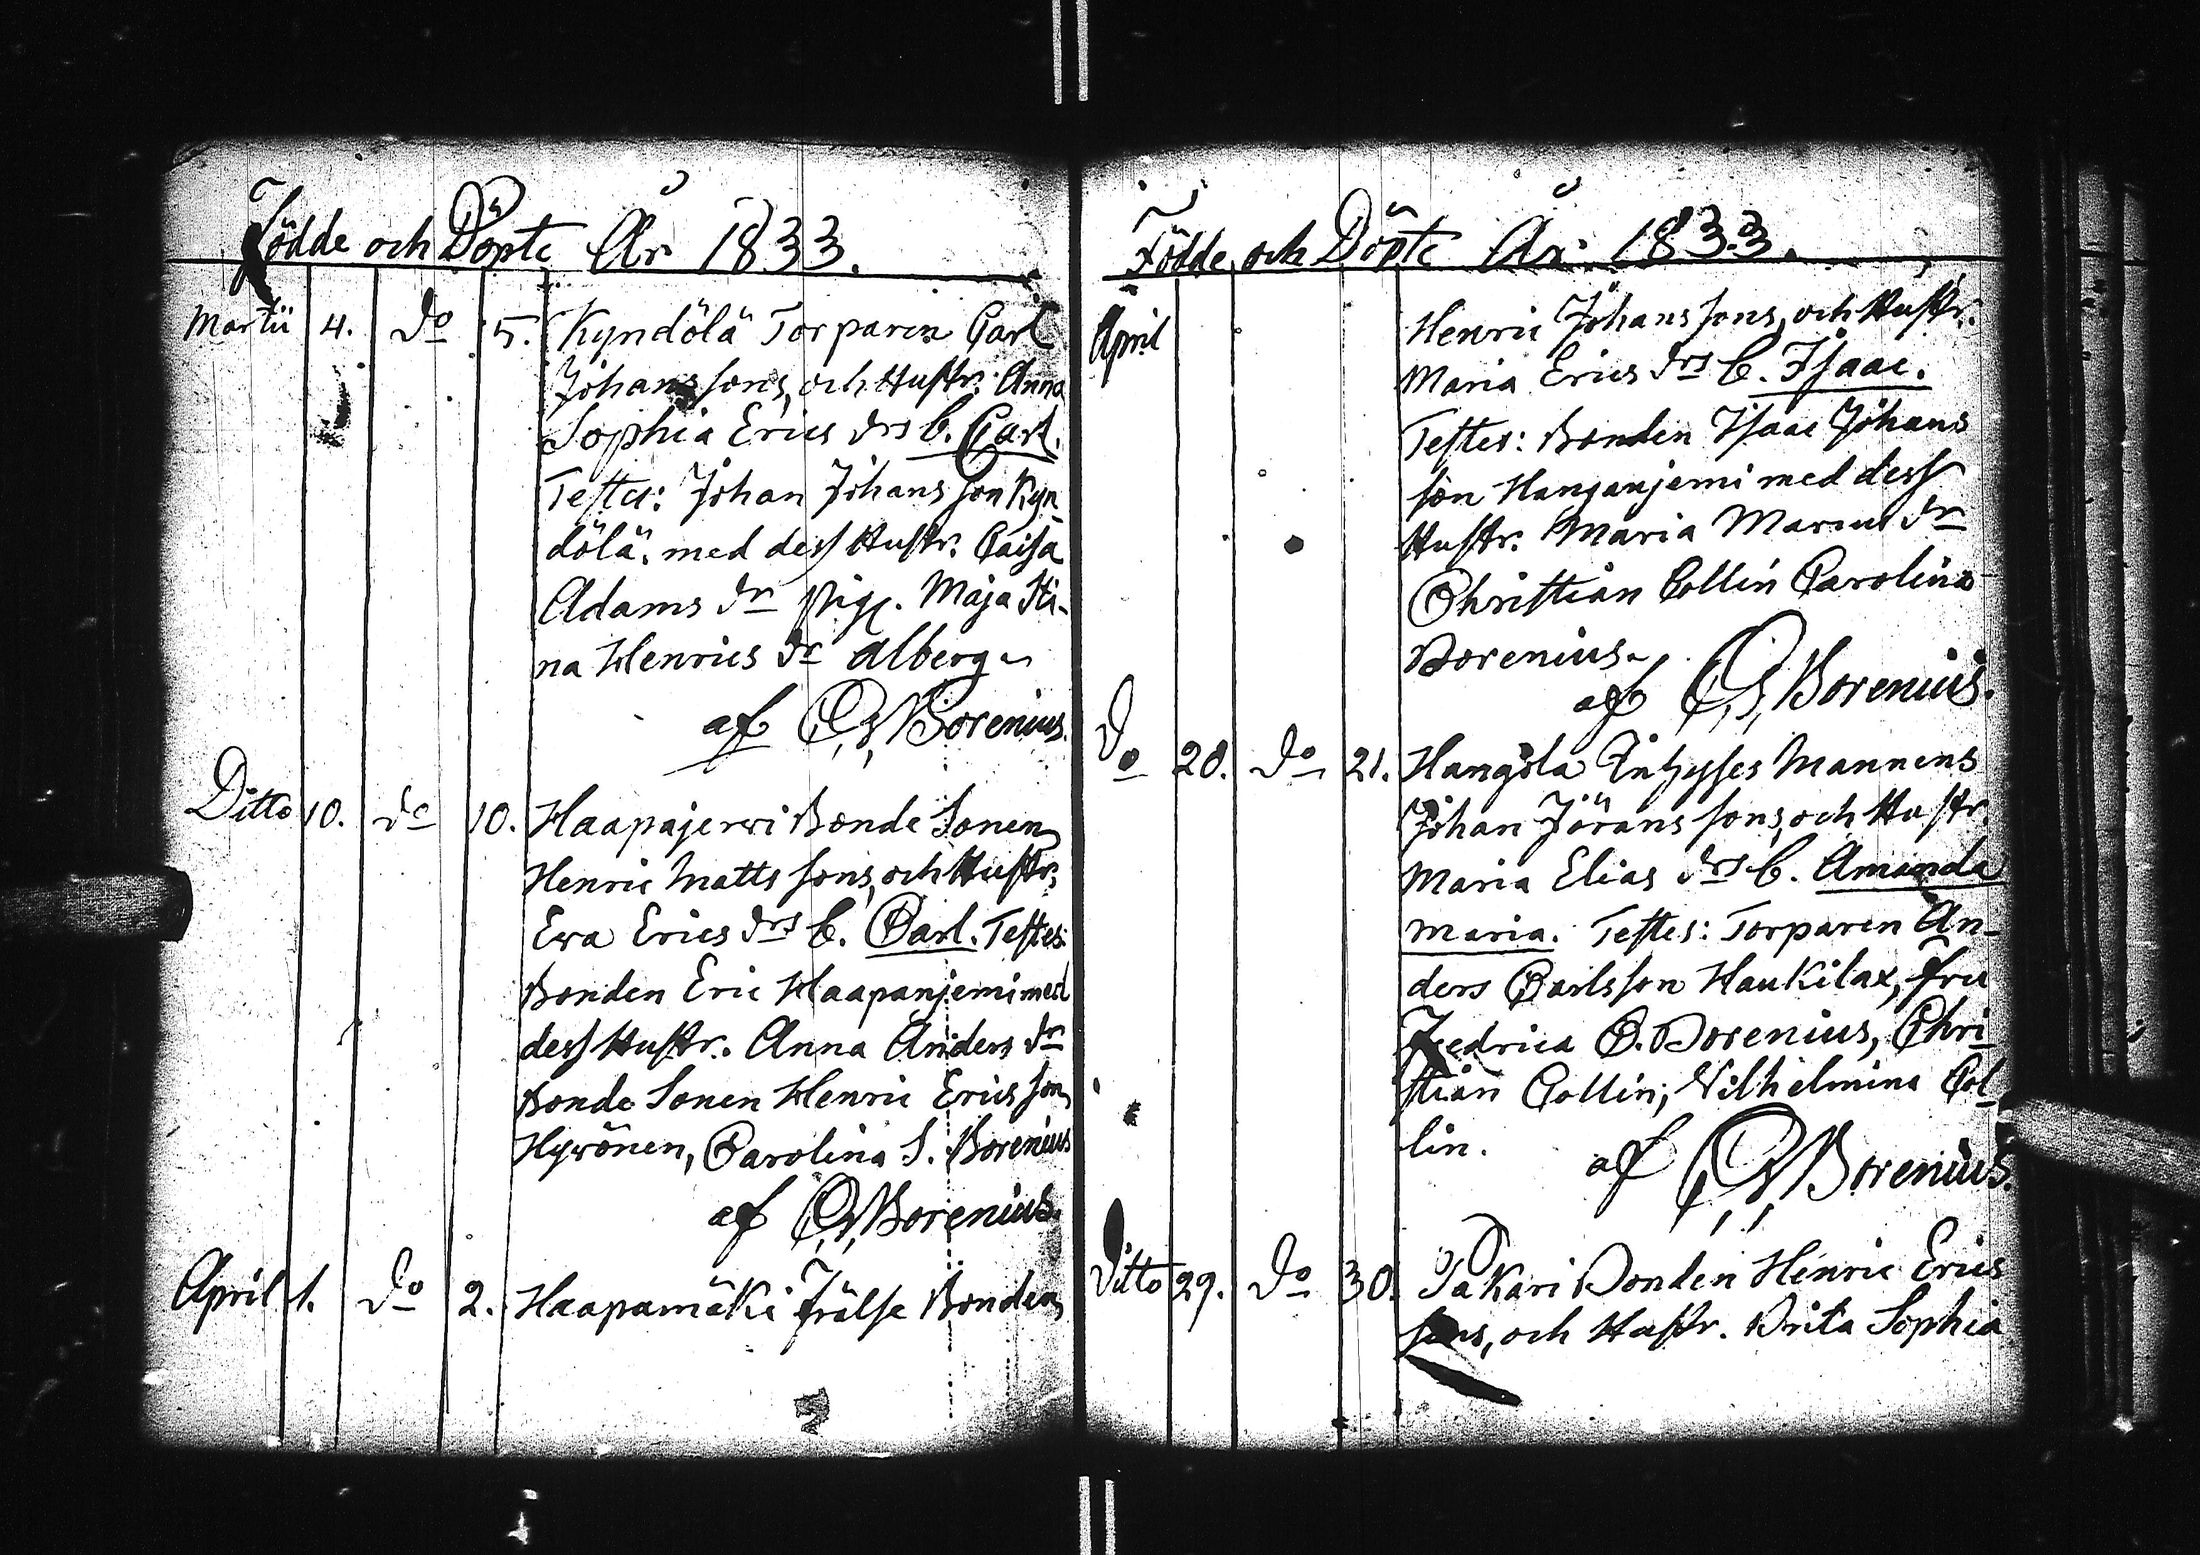 Födde och Döpte År 1833.
Martii 4. do 5. Kyndölä Torparen Carl
Johans sons, och Hustr. Anna
Sophia Erics drs b. Carl.
Testes: Johan Johans son Kyn-
dölä. med dess Hustr. Caisa
Adams dr pig. Maja Sti-
na Henrics dr Alberg
af C. G. Borenius.
Ditto 10. do 10. Haapajerwi Bonde Sonen
Henric Matts sons, och Hustr.
Ewa Erics drs b. Carl. Testes:
Bonden Eric Haapanjemi med
dess Hustr. Anna Anders dr
Bonde Sonen Henric Erics son
Hywönen, Carolina S. Borenius
af C. G. Borenius.
April 1. do 2. Haapamäki Frälse Bonden
Födde och Döpte År 1833.
April Henric Johans sons, och Hustr.
Maria Erics drs b. Isaac.
Testes: Bonden Isaac Johans
son Hanganjemi med dess
Hustr. Maria Marcus dr
Christian Collin Carolina
Borenius.
af C. G. Borenius.
Do 20. do 21. Hangola Inhyses Mannens
Johan Jörans sons, och Hustr.
Maria Elias drs b. Amanda
Maria. Testes: Torparen An-
ders Carlsson Haukilax, Fru
Fredrica C. Borenius, Chri-
stian Collin, Vilhelmina Col-
lin. af C. G. Borenius.
Ditto 29. do 30. Takari Bonden Henric Erics
sons, och Hustr. Brita Sophia